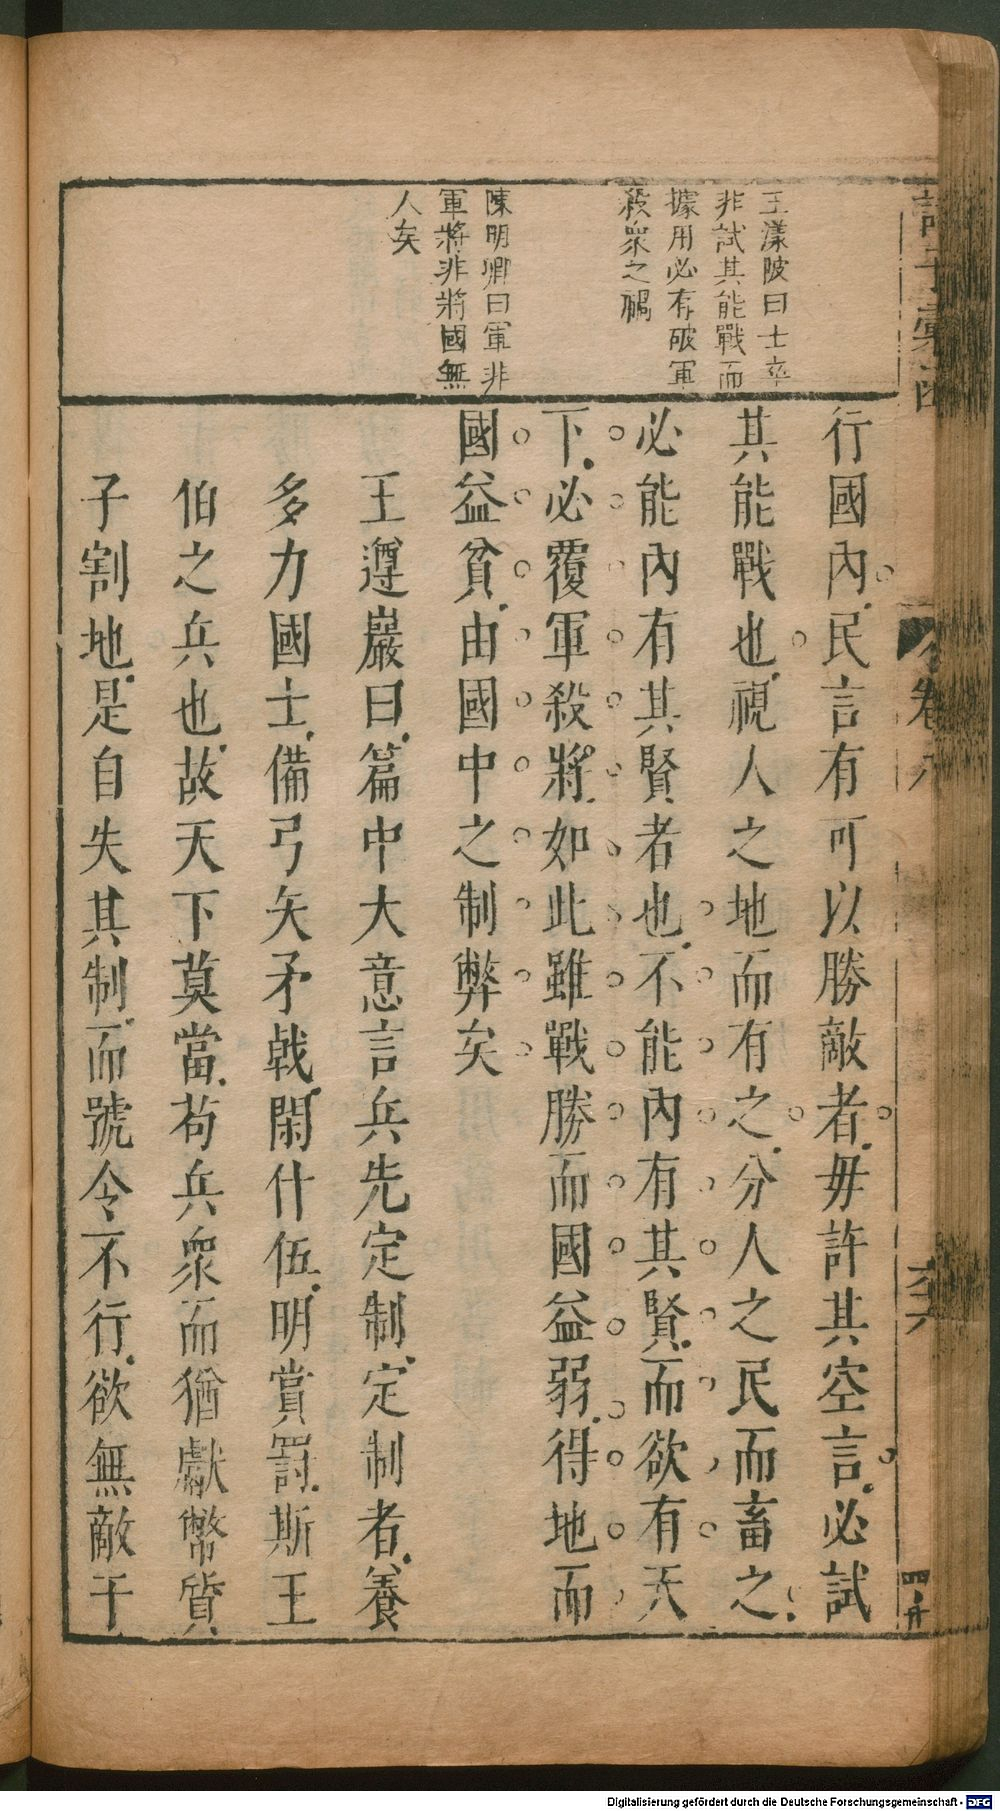 王漾陂曰士卒
非試其能戰而
據用必有破軍
殺衆之禍
陳明卿曰軍非
軍將非將國無
人矣
行國內民言有可以勝敵者毋許其空言必試
其能戰也視人之地而有之分人之民而畜之
必能內有其賢者也不能內有其賢而欲有天
下必覆軍殺將如此雖戰勝而國益弱得地而
國益貧由國中之制弊矣
王遵巖曰篇中大意言兵先定制定制者養
多力國士備弓矢矛戟閑什伍明賞罰斯王
伯之兵也故天下莫當苟兵衆而猶獻幣質
子割地是自失其制而號令不行欲無敵于
卷八
六
四卅
Digitalisierung gefördert durch die Deutsche Forschungsgemeinschaft - DFG